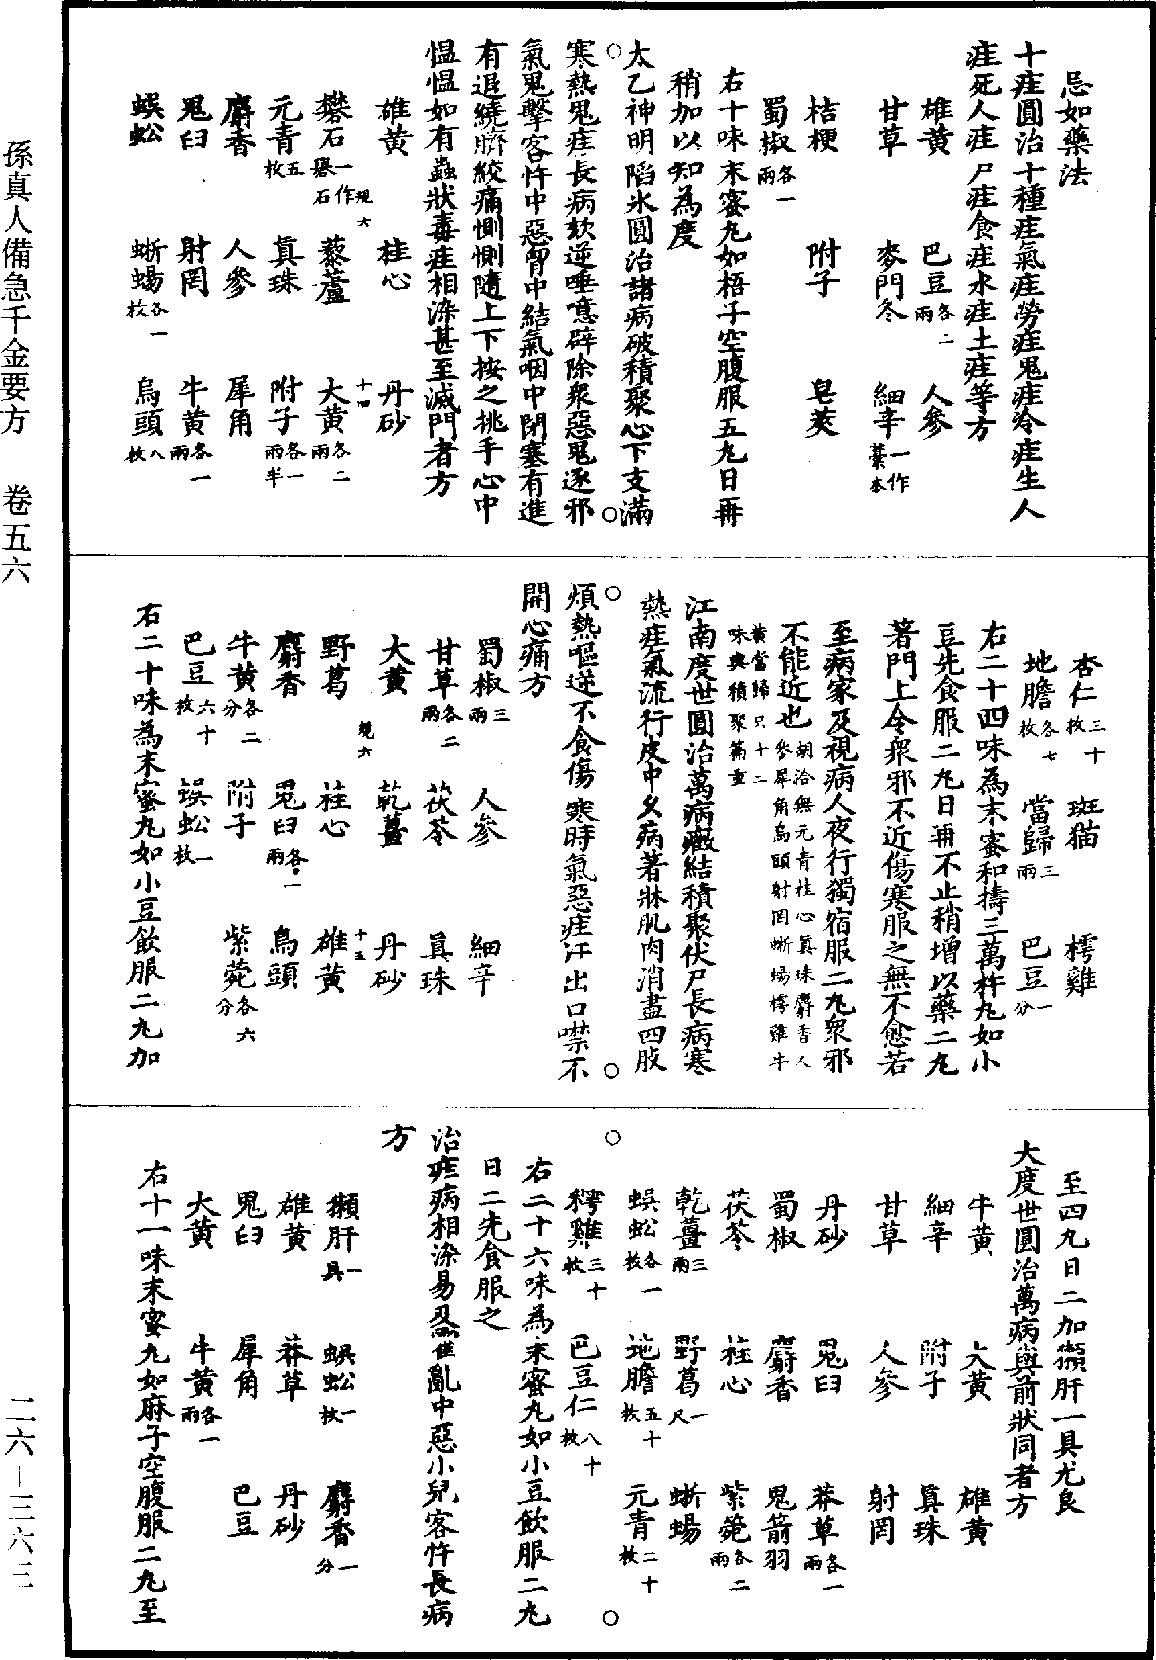 忌如藥法
十疰圓治十種疰氣疰勞疰鬼疰冷疰生人
疰死人疰尸疰食疰水疰土疰等方
雄黃　巴豆各二兩　人參
甘草　麥門冬　細辛一作藁本
桔梗　附子　皂莢
蜀椒各一兩
右十味末蜜丸如梧子空腹服五丸日再
稍加以知為度
太乙神明陷氷圓治諸病破積聚心下支滿
寒熱鬼疰長病欬逆唾噫辟除衆惡鬼逐邪
氣鬼擊客忤中惡胷中結氣咽中閉塞有進
有退繞臍絞痛惻惻隨上下按之挑手心中
愠愠如有蟲狀毒疰相染甚至滅門者方
雄黃　桂心　丹砂
規六　十四
礬石一作礜石　藜蘆　大黃各二兩
元青五枚　真珠　附子各一兩半
麝香　人參　犀角
鬼臼　射罔　牛黃各一兩
蜈蚣　蜥蜴各一枚　烏頭八枚
杏仁三十枚　斑猫　樗雞
地膽各七枚　當歸三兩　巴豆一分
右二十四味為末蜜和擣三萬杵丸如小
豆先食服二丸日再不止稍增以藥二丸
著門上令衆邪不近傷寒服之無不愈若
至病家及視病人夜行獨宿服二丸衆邪
不能近也胡洽無元青桂心真珠麝香人參犀角烏頭射罔蜥蜴樗雞牛
黃當歸只十二味與積聚篇重
江南度世圓治萬病癥結積聚伏尸長病寒
熱疰氣流行皮中久病著牀肌肉消盡四肢
煩熱嘔逆不食傷寒時氣惡疰汗出口噤不
開心痛方
蜀椒三兩　人參　細辛
甘草各二兩　茯苓　真珠
大黃　乾薑　丹砂
規六　十五
野葛　桂心　雄黃
麝香　鬼臼各一兩　烏頭
牛黃各二分　附子　紫菀各六分
巴豆六十枚　蜈蚣一枚
右二十味為末蜜丸如小豆飲服二丸加
至四丸日二加獺肝一具尤良
大度世圓治萬病與前狀同者方
牛黃　大黃　雄黃
細辛　附子　真珠
甘草　人參　射罔
丹砂　鬼臼　莽草各一兩
蜀椒　麝香　鬼箭羽
茯苓　桂心　紫菀各二兩
乾薑三兩　野葛一尺　蜥蜴
蜈蚣各一枚　地膽五十枚　元青二十枚
樗雞三十枚　巴豆仁八十枚
右二十六味為末蜜丸如小豆飲服二丸
日二先食服之
治疰病相染易及霍亂中惡小兒客忤長病
方
獺肝一具　蜈蚣一枚　麝香一分
雄黃　莽草　丹砂
鬼臼　犀角　巴豆
大黃　牛黃各一兩
右十一味末蜜丸如麻子空腹服二丸至
孫真人備急千金要方　卷五六　二六—三六三